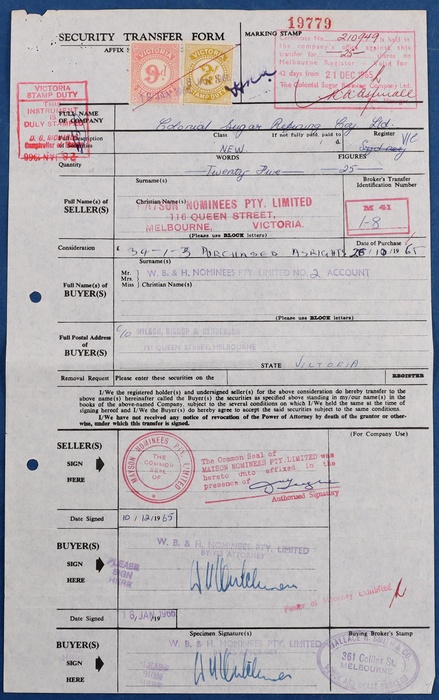 19779
SECURITY TRANSFER FORM
MARKING STAMP
AFFIX S
VICTORIA
9d
STAMP DUTY
VICTORIA
STAMP DUTY
Certificate No. 210949 is held in
the company's office against this
transfer for -25- shares on
Melbourne Register - Valid for
42 days from 21 DEC 1965
The Colonial Sugar Refining Co. Ltd.
VICTORIA
STAMP DUTY
THIS
INSTRUMENT
IS
DULY STAMPED
FULL NAME
OF COMPANY
Colonial Sugar Refining Coy Ltd.
Full Description
Class
If not fully paid, paid to
Register
NEW
Sydney Vic
Quantity
WORDS
FIGURES
Twenty Five
25
Surname(s)
Broker's Transfer
Identification Number
Full Name(s) of
SELLER(S)
Christian Name(s)
MATSON NOMINEES PTY. LIMITED
116 QUEEN STREET,
MELBOURNE, VICTORIA.
(Please use BLOCK letters)
M 41
1-8
Consideration
£ 34-1-3 PURCHASED AS RIGHTS
Date of Purchase
Surname(s)
Full Name(s) of
BUYER(S)
Mr.
Mrs.
Miss
W. B. & H. NOMINEES PTY. LIMITED NO. 2 ACCOUNT
Christian Name(s)
(Please use BLOCK letters)
Full Postal Address
of
BUYER(S)
C/o WILSON, BISHOP & HENDERSON
QUEEN STREET, MELBOURNE
STATE VICTORIA
Removal Request
Please enter these securities on the
REGISTER
I/We the registered holder(s) and undersigned seller(s) for the above consideration do hereby transfer to the
above name(s) hereinafter called the Buyer(s) the securities as specified above standing in my/our name(s) in the
books of the above-named Company, subject to the several conditions on which I/We held the same at the time of
signing hereof and I/We the Buyer(s) do hereby agree to accept the said securities subject to the same conditions.
I/We have not received any notice of revocation of the Power of Attorney by death of the grantor or other-
wise, under which this transfer is signed.
SELLER(S)
SIGN
HERE
MATSON NOMINEES PTY. LIMITED
THE
COMMON
SEAL
OF
The Common Seal of
MATSON NOMINEES PTY. LIMITED was
hereto unto affixed in the
presence of
Authorised Signatory
(For Company Use)
Date Signed
10/12/1965
BUYER(S)
SIGN
HERE
PLEASE
SIGN
HERE
W. B. & H. NOMINEES PTY. LIMITED
BY ITS ATTORNEY
Power of Attorney Exhibited
Date Signed
18 JAN 1966
/19
BUYER(S)
SIGN
HERE
Specimen Signature(s)
W. B. & H. NOMINEES PTY. LIMITED
Buying Broker's Stamp
361 Collins St.
MELBOURNE